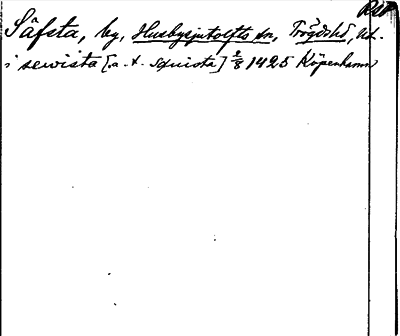 Säfsta, by, Husbysjutolfts sn, Trögds hd, Upl.
i sewista [a. t. Squista] 2/8 1425 Köpenhamn